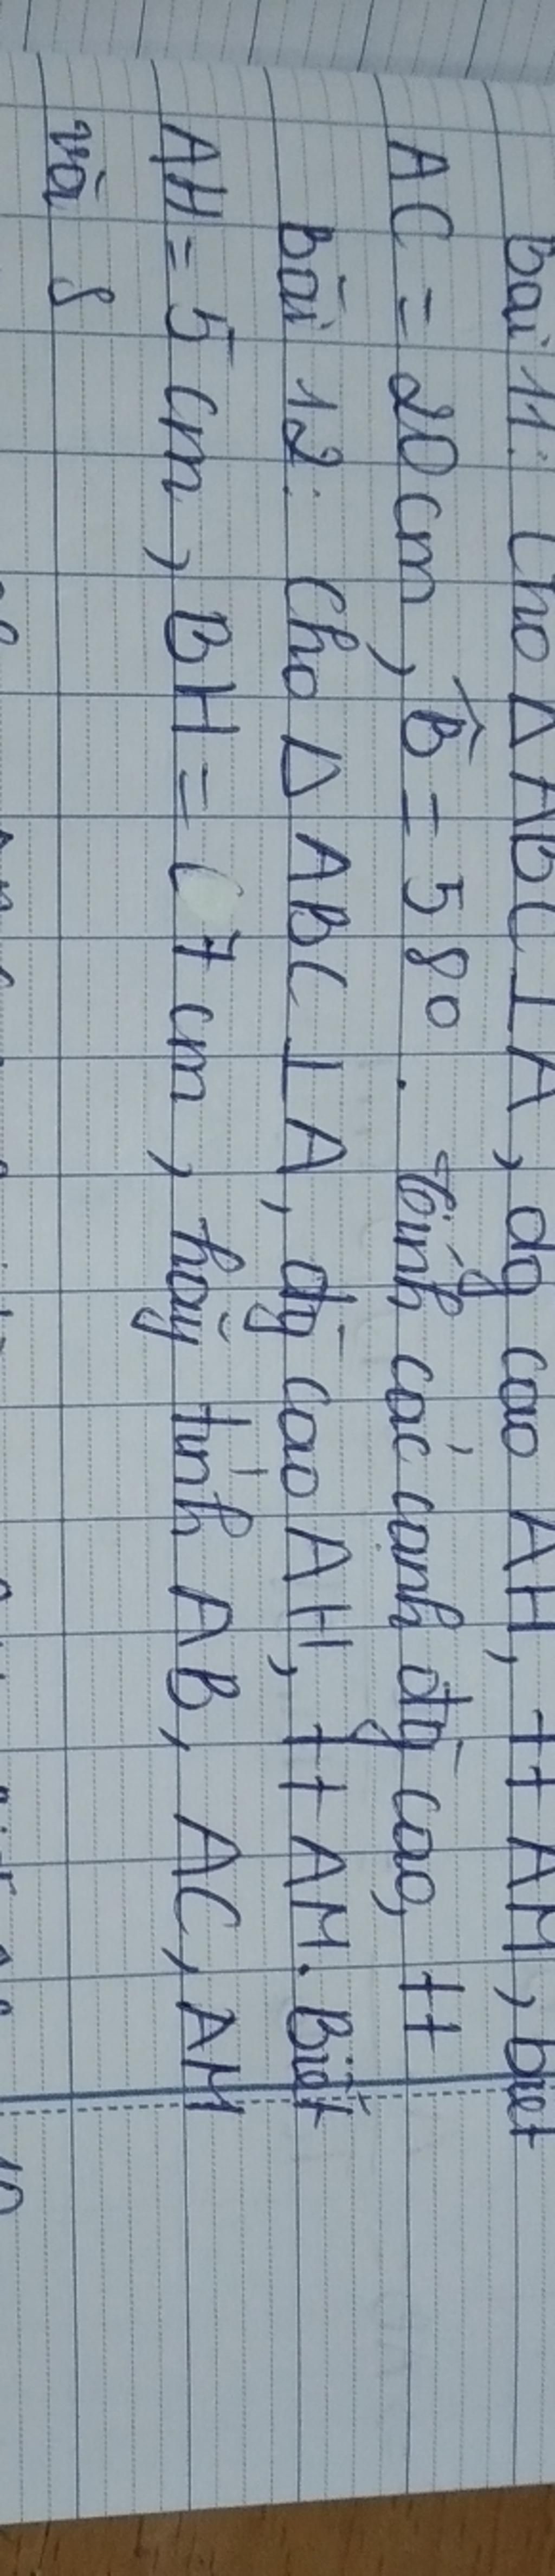 bài 11: Cho ΔABC⊥A, đg cao AH, tt AM, biết
AC = 20cm, B̂ = 58°. tính các cạnh đg cao, tt
bài 12: Cho ΔABC⊥A, đg cao AH, tt AM. Biết
AH = 5 cm, BH = 7 cm, hãy tính AB, AC, AM
và S